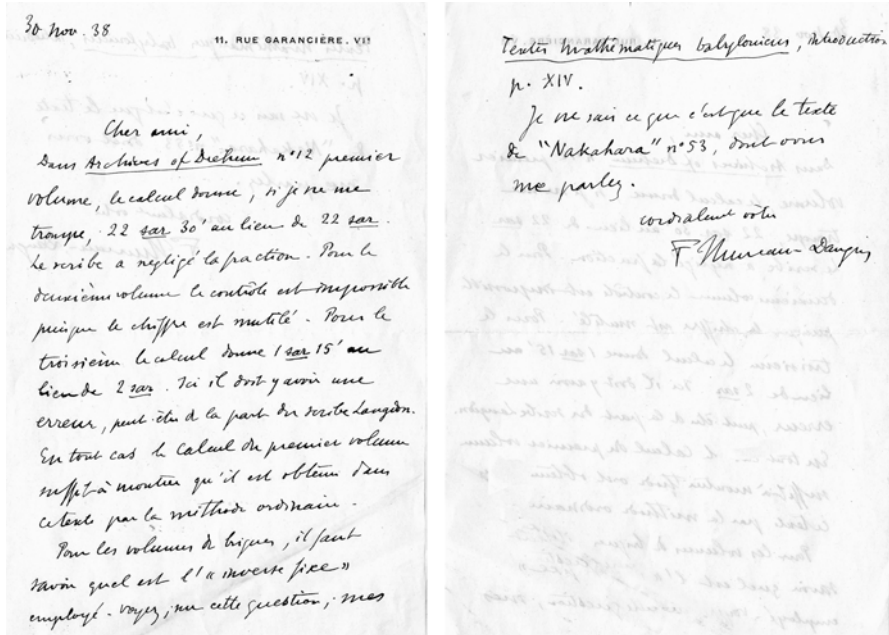 30 nov. 38
11, RUE GARANCIÈRE. VIᵉ
Cher ami,
Dans Archives of Drehem n°12 premier
volume, le calcul donne, si je ne me
trompe, 22 sar 30' au lieu de 22 sar.
Le scribe a négligé la fraction. Pour le
deuxième volume le contrôle est impossible
puisque le chiffre est mutilé. Pour le
troisième le calcul donne 1 sar 15' au
lieu de 2 sar. Ici il doit y avoir une
erreur, peut-être de la part du scribe Langdon.
En tout cas le calcul du premier volume
suffit à montrer qu'il est obtenu dans
ce texte par la méthode ordinaire.
Pour les volumes de briques, il faut
savoir quel est l'« inverse fixe »
employé. Voyez, sur cette question, mes
Textes mathématiques babyloniens, introduction
p. XIV.
Je ne sais ce que c'est que le texte
de "Nakahara" n°53, dont vous
me parlez.
cordialement votre
F Thureau-Dangin